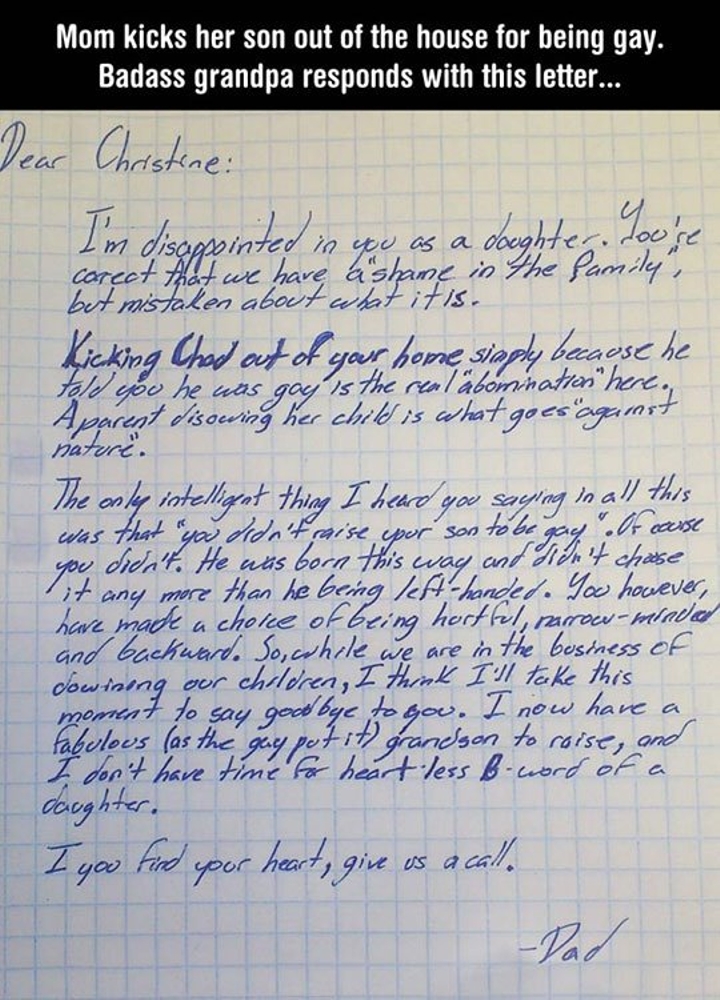 Mom kicks her son out of the house for being gay.
Badass grandpa responds with this letter...
Dear Christine:
I'm disappointed in you as a daughter. You're
corect that we have a "shame in the family",
but mistaken about what it is.
Kicking Chad out of your home simply because he
told you he was gay is the real "abomination" here.
A parent disowing her child is what goes "against
nature".
The only intelligent thing I heard you saying in all this
was that "you didn't raise your son to be gay". Of course
you didn't. He was born this way and didn't choose
it any more than he being left-handed. You however,
have made a choice of being hurtful, narrow-minded
and backward. So, while we are in the business of
dowining our children, I think I'll take this
moment to say goodbye to you. I now have a
fabulous (as the gay put it) grandson to raise, and
I don't have time for heart-less B-word of a
daughter.
I you find your heart, give us a call.
-Dad